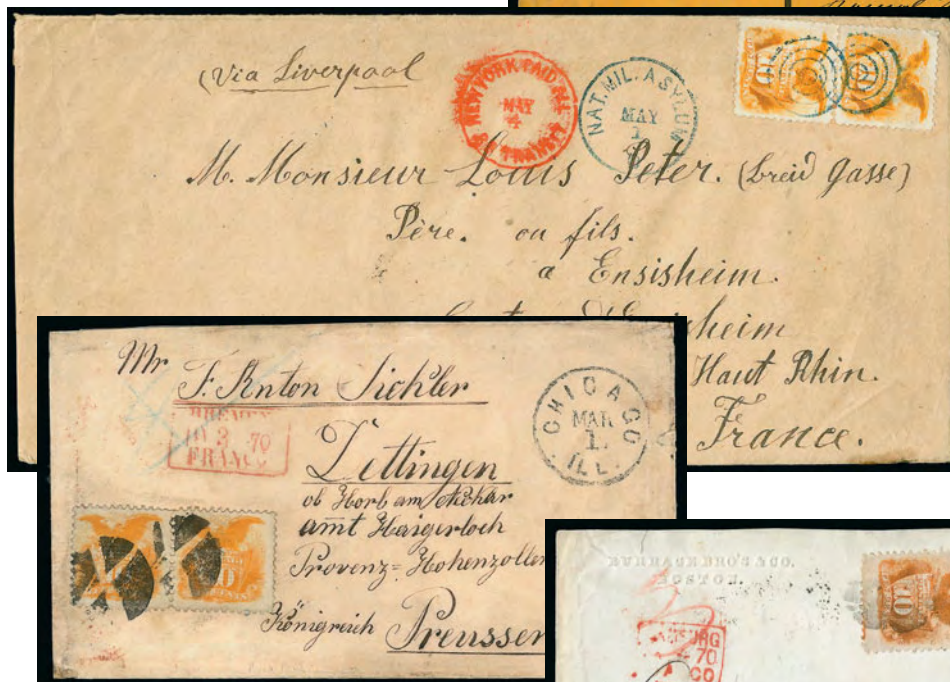 (Via Liverpool
NEW YORK PAID ALL
MAY
4
BR. TRANSIT
NAT. MIL. ASYLUM
MAY
1
M. Monsieur Louis Peter. (breid gasse)
Père. ou fils.
a Ensisheim.
sheim
Haut Rhin.
France.
Mr
F. Anton Sichler
BREMEN
3 70
FRANCO
CHICAGO
MAR
1.
ILL.
Dettingen
ob Horb am Nekar
amt Haigerloch
Provenz= Hohenzoller
Königreich Preussen
BURRAGE BRO'S & CO.
BOSTON.
10
70
CO